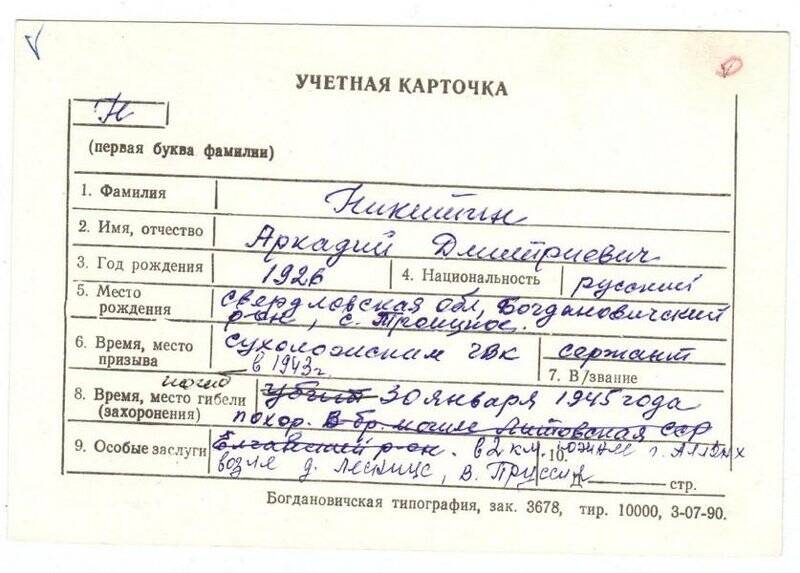 УЧЕТНАЯ КАРТОЧКА
Н
(первая буква фамилии)
1. Фамилия Никитин
2. Имя, отчество Аркадий Дмитриевич
3. Год рождения 1926 4. Национальность русский
5. Место рождения Свердловская обл, Богдановичский
р-он, с. Троицкое.
6. Время, место призыва Сухоложским ГВК сержант
в 1943г. 7. В/звание
8. Время, место гибели (захоронения) убит 30 января 1945 года
похор. В бр. могиле Литовская ССР
9. Особые заслуги р-он. в 2 км. южнее г. 10.
возле д. В. Пруссия стр.
Богдановичская типография, зак. 3678, тир. 10000, 3-07-90.